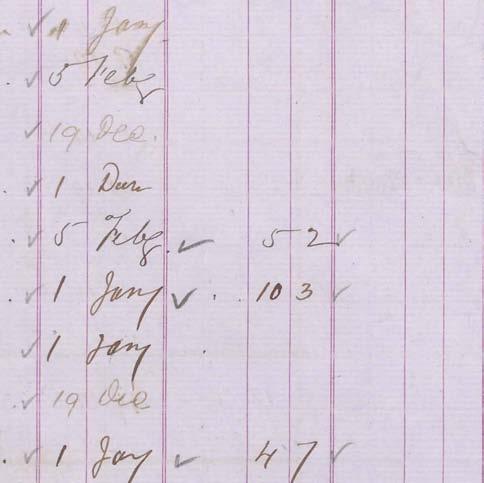 ✓ 1 Jany
✓ 5 Feby
✓ 19 Dec.
✓ 1
✓ 5 Feby ✓ 5 2 ✓
✓ 1 Jany ✓ 10 3 ✓
✓ 1 Jany
✓ 19 Dec
✓ 1 Jay ✓ 4 7 ✓